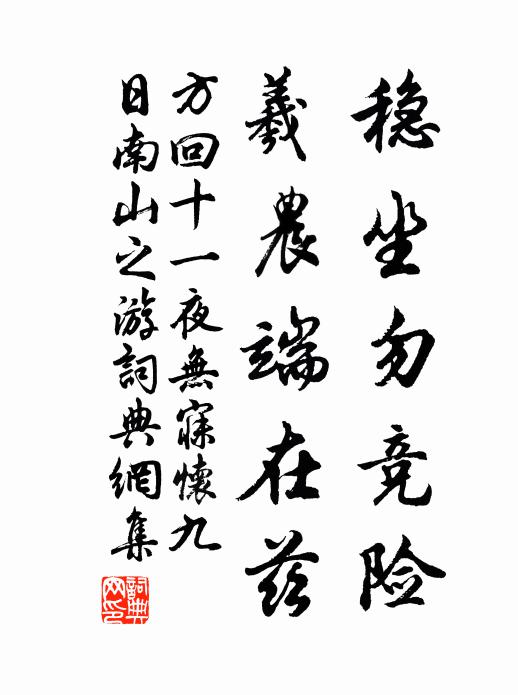 稳坐勿竞险
羲農端在兹
方回十一夜無寐懷九
日南山之游詞典網集
詞典
网印